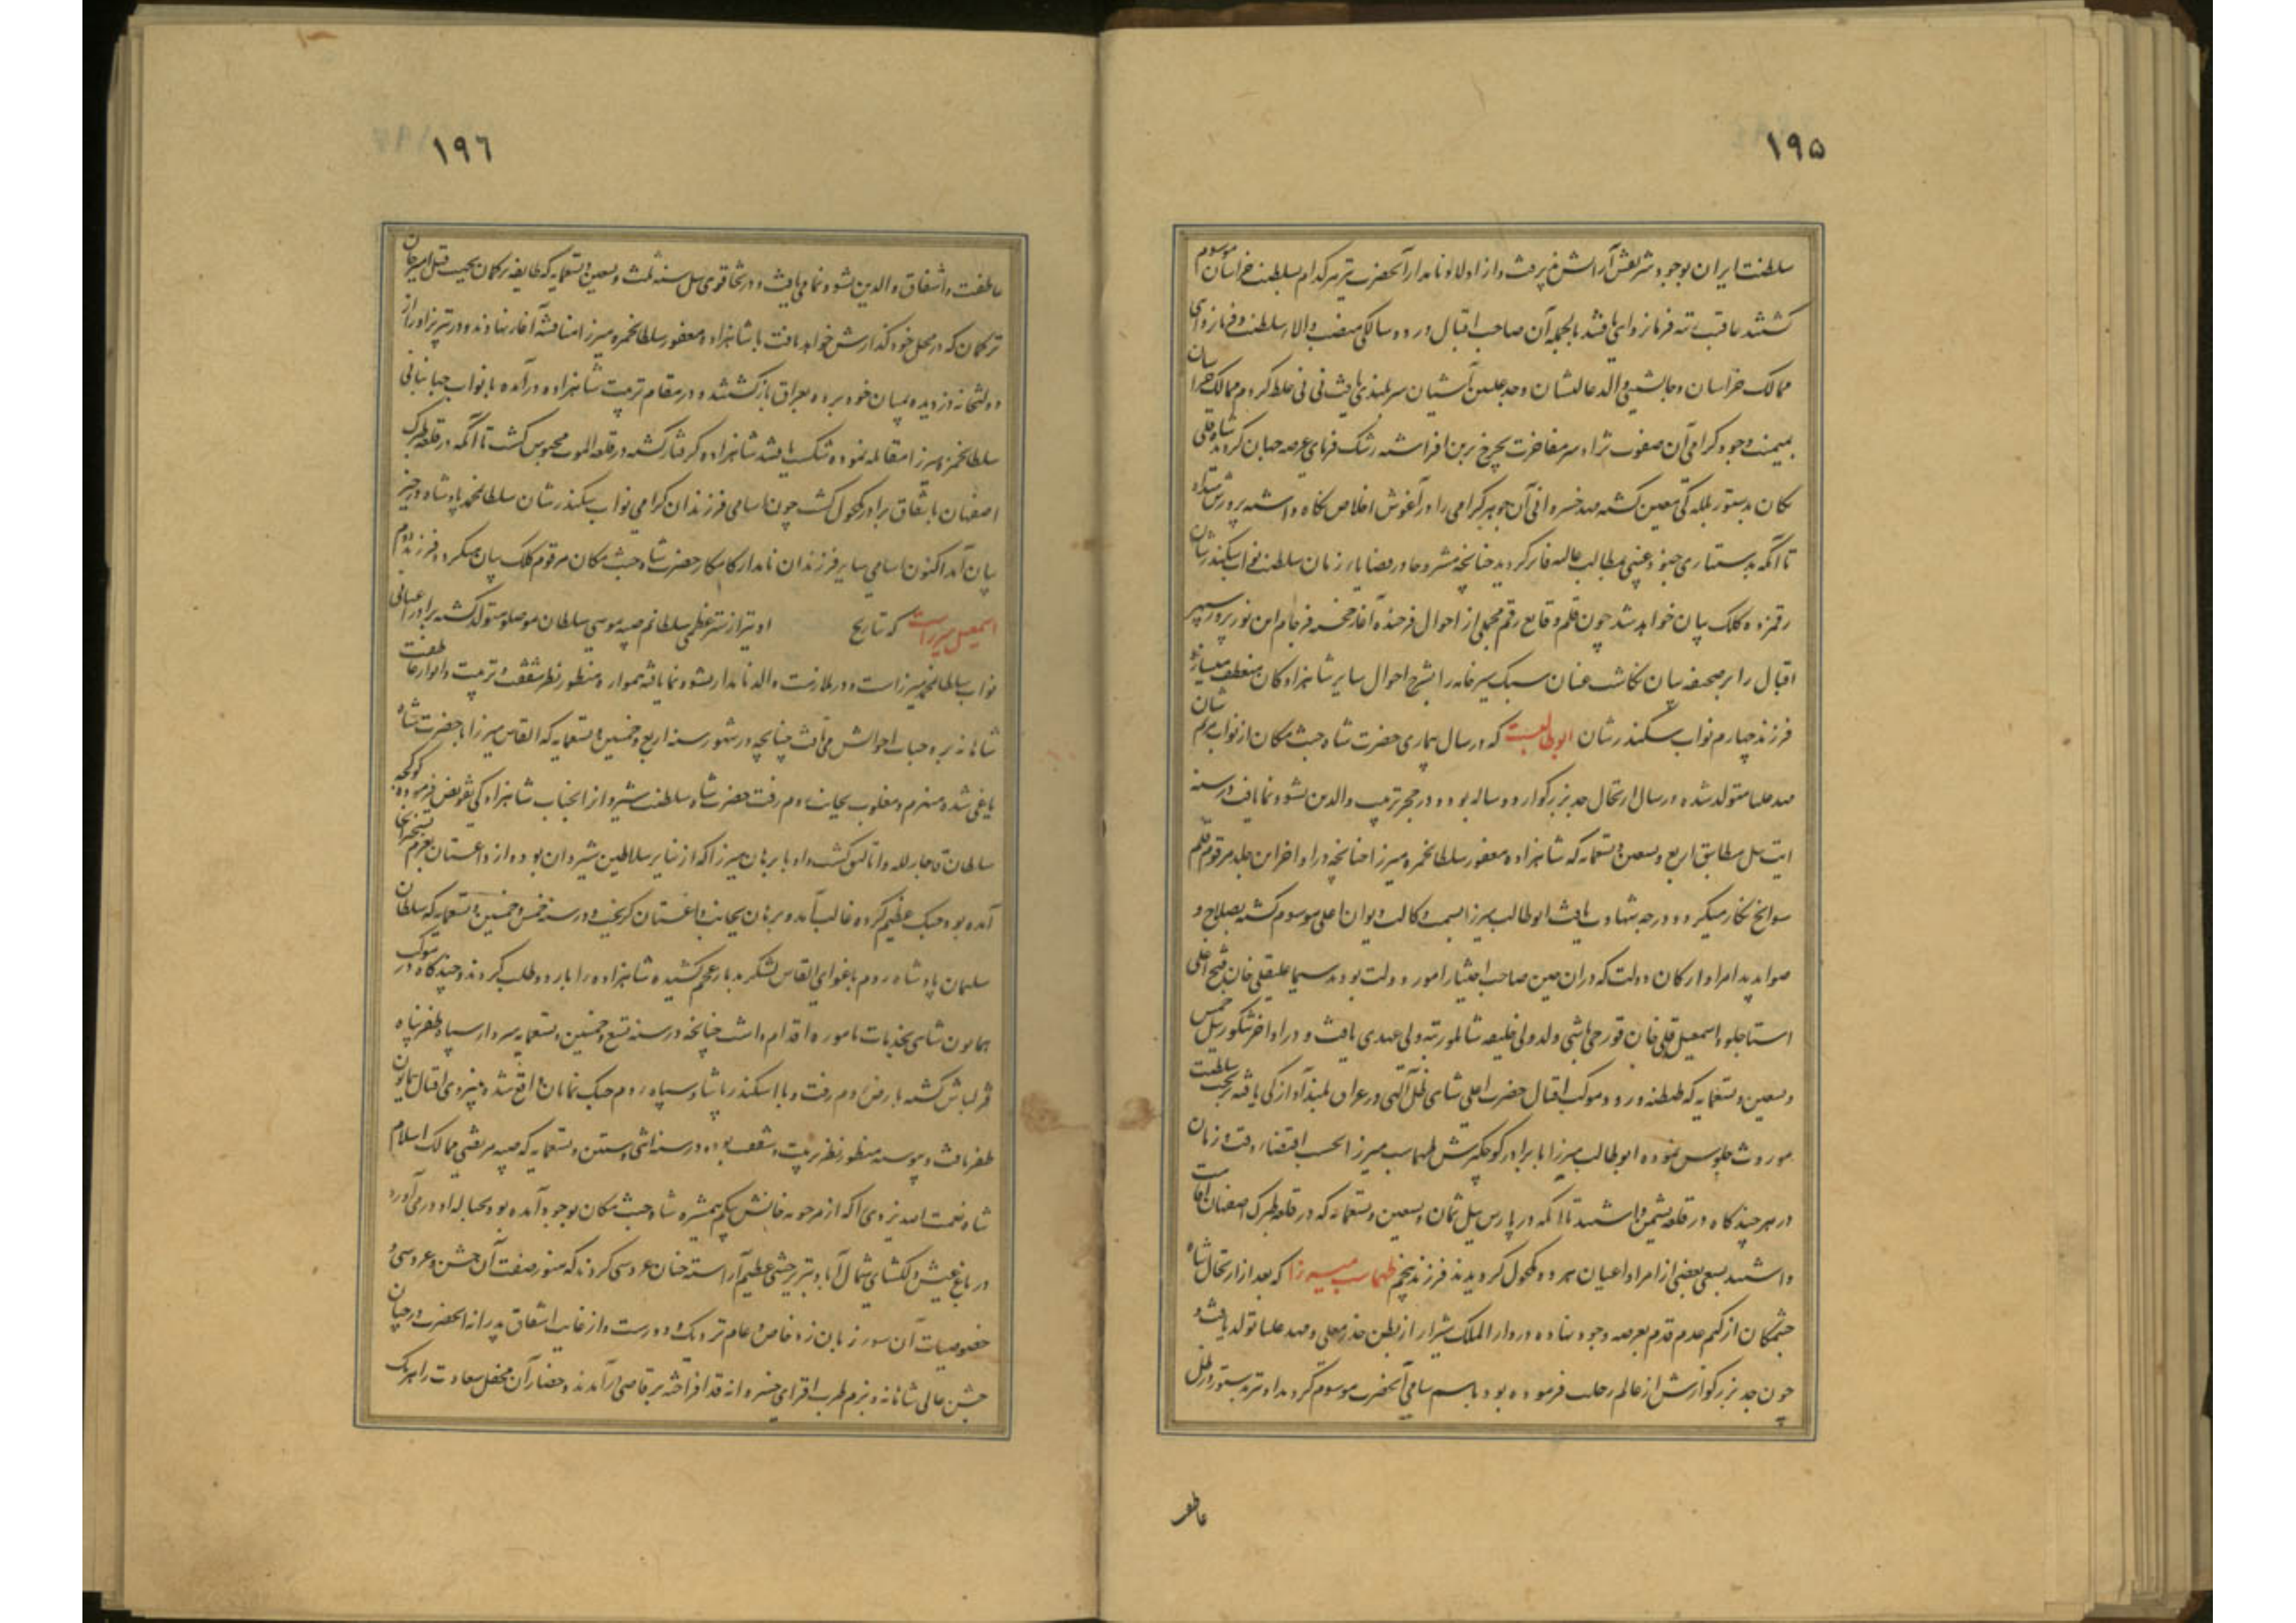 ۱۹۵
سلطنت ایران بوجود شریفش آرایش پذیرفت و از اولاد نامدار آنحضرت نیز هر کدام بسلطنت خراسان موسوم
کشتند عاقبت به فرمانروایی یافتند بالجمله آن صاحب اقبال در دو سالگی بمنصب والای سلطنت و فرمانروای
ممالک خراسان و جانشینی والد عالیشان و جد علیین آشیان سربلندی یافت نی نی غلط کردم ممالک خراسان
بمیمنت وجود کرامی آن صفوت نژاد سر مفاخرت بچرخ برین افراشته رشک فرمای عرصه جهان کردید شاه قلی
سلطان یکان بدستور بللـه کی معین کشته مهد خسروانی آن جوهر کرامی را در آغوش اخلاص نکاه داشته پرورش میداد
تا آنکه بدستیاری جنود غیبی بمطالب عالیه فایز کردید چنانچه مشروحا در قضایای زمان سلطنت نواب سکندر شان
رقمزده کلک بیان خواهد شد چون قلم وقایع رقم مجملی از احوال فرخنده آغاز خجسته فرجام این نور پرور سپهر
اقبال را بر صحیفه بیان نکاشت عنان سبک سیر خامه را بشرح احوال سایر شاهزادکان منعطف میسازد
فرزند چهارم نواب سکندر شان ابوطالب است که در سال بیماری حضرت شاه جنت مکان از نواب مریم شان
مهد علیا متولد شده در سال ارتحال جد بزرکوار دو ساله بود و در حجر تربیت والدین نشو و نما یافت در سنه
ایت ئیل مطابق اربع و تسعین و تسعمایه که شاهزاده مغفور سلطان حمزه میرزا چنانچه در اواخر این جلد مرقوم قلم
سوانح نکار میکردد درجه شهادت یافت ابوطالب میرزا بسمت وکالت دیوان اعلی موسوم کشته بصلاح و
صوابدید امرا و ارکان دولت که در ان حین صاحب اختیار امور دولت بودند سیما علیقلی خان فتح اغلی
استاجلو و اسمعیل قلی خان قورچی باشی ولد ولی خلیفه شاملو رتبه ولی عهدی یافت و در اواخر تنکوزئیل خمس
و تسعین و تسعمایه که طنطنه ورود موکب اقبال حضرت اعلی شاهی ظل اللهی در عراق بلند آوازکی یافته بتخت سلطنت
موروث جلوس نمود ابوطالب میرزا با برادر کوچکترش طهماسب میرزا بحسب اقتضاء وقت و زمان
در هر چند کاه در قلعه نشیمن داشتند تا آنکه در پارس ئیل ثمان و تسعین و تسعمایه که در قلعه طبرک اصفهان اقامت
داشتند بسعی بعضی از امرا و اعیان هر دو مکحول کردیدند فرزند پنجم طهماسب میرزا که بعد از ارتحال شاه
جنتمکان از کتم عدم قدم بعرصه وجود نهاده در دار الملک شیراز از بطن خدر معلی و مهد علیا تولد یافت و
چون جد بزرکوارش از عالم رحلت فرموده بود باسم سامی آنحضرت موسوم کردید او نیز بدستور در ظل
عاطفـ
۱۹٦
عاطفت و اشفاق والدین نشو و نما می یافت و در تخاقوی ئیل سنه ثلث و تسعین و تسعمایه که طایفه ترکمان بجهت قتل امیر خان
ترکمان که در محل خود کذارش خواهد یافت با شاهزاده مغفور سلطان حمزه میرزا مناقشه آغاز نهادند و در تبریز او را از
دولتخانه دزدیده بمیان خود برده بعراق باز کشتند و در مقام تربیت شاهزاده در آمده با نواب جهانبانی
سلطان حمزه میرزا مقابله نموده شکست یافتند شاهزاده کرفتار کشته در قلعه الموت محبوس کشت تا آنکه در قلعه طبرک
اصفهان باتفاق برادر مکحول کشت چون اسامی فرزندان کرامی نواب سکندر شان سلطان محمد پادشاه در حیز
بیان آمد اکنون اسامی سایر فرزندان نامدار کامکار حضرت شاه جنت مکان مرقوم کلک بیان میکردد فرزند دوم
اسمعیل میرزاست که تاریخ او نیز از ستر عظمی سلطانم صبیه موسی سلطان موصلو متولد کشته برادر اعیانی
نواب سلطان محمد میرزاست و در ملازمت والد نامدار نشو و نما یافته همواره منظور نظر شفقت و تربیت و انوار عاطفت
شاهانه بر وجنات احوالش می تافت چنانچه در شهور سنه اربع و خمسین و تسعمایه که القاس میرزا با حضرت شاه
یاغی شده منهزم و مغلوب بجانب روم رفت حضرت شاه سلطنت شیروان از انجناب شاهزادکی تفویض فرمودند کوکجه
سلطان قاجار لله و اتالیق کشت و او با برهان میرزا که از نبایر سلاطین شیروان بود و از داغستان بعزم تسخیر آنجا
آمده بود جنک عظیم کرده غالب آمد و برهان بجانب داغستان کریخت و در سنه خمس و خمسین و تسعمایه که سلطان
سلیمان پادشاه روم باغوای القاس لشکر بدیار عجم کشیده شاهزاده را باردو طلب کردند و چند کاه در موکب
همایون شاهی بخدمات ماموره اقدام داشت چنانچه در سنه تسع و خمسین و تسعمایه سردار سپاه ظفر پناه
قزلباش کشته بارض روم رفت و با اسکندر پاشا و سپاه روم جنک نمایان واقع شده بنیروی اقبال همایون
ظفر یافت و پیوسته منظور نظر تربیت و شفقت بوده در سنه اثنی و ستین و تسعمایه که صبیه مرتضی ممالک اسلام
شاه نعمت الله یزدی را که از مرحومه خانش بیکم همشیره شاه جنت مکان بوجود آمده بود بحباله او در می آوردند
در باغ عیش دلکشای شمال آباد تبریز جشنی عظیم آراسته چنان عروسی کردند که هنوز صفت آن جشن و عروسی و
خصوصیات آن سور زبان زد خاص و عام ترک و دورست و از غایت اشفاق پدرانه آنحضرت در چنان
جشن عالی شاهانه و بزم طرب افزای خسروانه قد افراخته برقاصی در آمدند و حضار آن محفل سعادت را هر یک